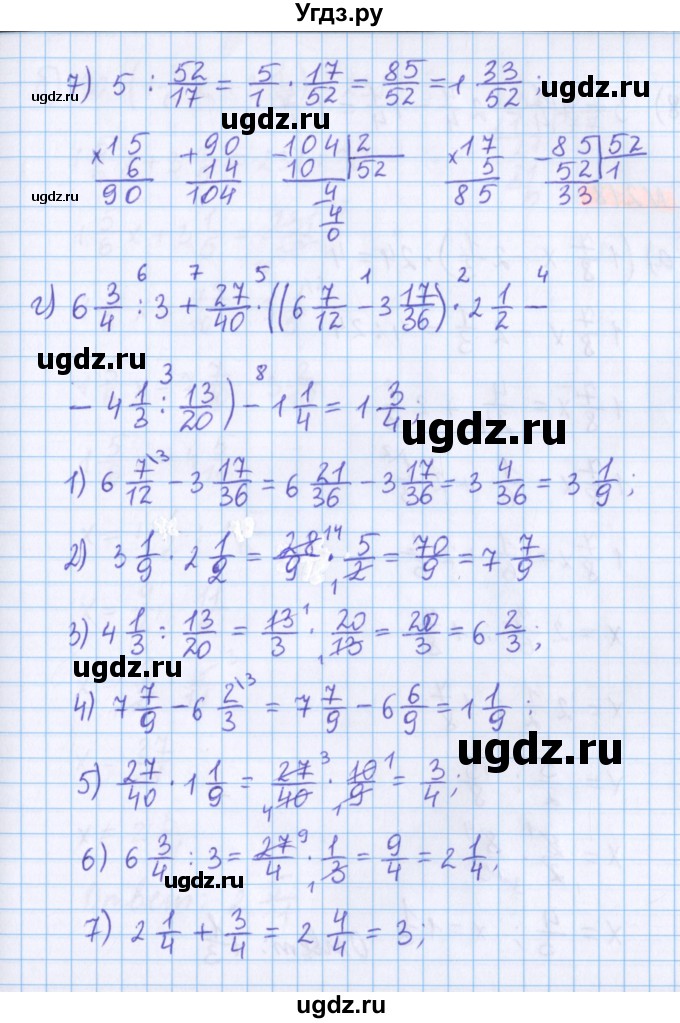 Угдз.ру
7) 5 : 52/17 = 5/1 · 17/52 = 85/52 = 1 33/52 ;
ugdz.ru ugdz.ru ugdz.ru
×15 6 90 +90 14 104 -104 |2 10 52 4 4 0 ×17 5 85 -85 |52 52 1 33
ugdz.ru
6 7 5 1 2 4
г) 6 3/4 : 3 + 27/40 · ((6 7/12 - 3 17/36) · 2 1/2 -
ugdz.ru
3 8
- 4 1/3 : 13/20) - 1 1/4 = 1 3/4 ;
ugdz.ru
1) 6 7/12 \3 - 3 17/36 = 6 21/36 - 3 17/36 = 3 4/36 = 3 1/9 ;
ugdz.ru
2) 3 1/9 · 2 1/2 = 28 14/9 · 5/2 1 = 70/9 = 7 7/9
3) 4 1/3 : 13/20 = 13 1/3 · 20/13 1 = 20/3 = 6 2/3 ;
ugdz.ru
4) 7 7/9 - 6 2/3 \3 = 7 7/9 - 6 6/9 = 1 1/9 ;
ugdz.ru
5) 27/40 · 1 1/9 = 27 3/40 4 · 10 1/9 1 = 3/4 ;
6) 6 3/4 : 3 = 27 9/4 · 1/3 1 = 9/4 = 2 1/4 ;
ugdz.ru
7) 2 1/4 + 3/4 = 2 4/4 = 3 ;
ugdz.ru